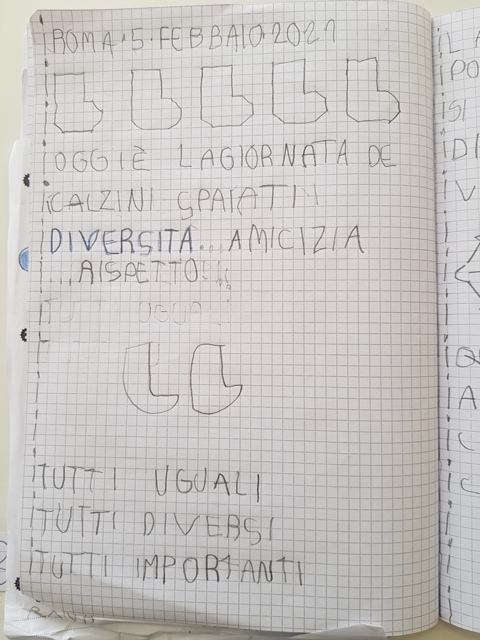 ROMA·5·FEBBAIO·2021
OGGI È LAGIORNATA DE
CALZINI SPAIATI
DIVERSITÀ... AMICIZIA
...RISPETTO!!!
TUTTI UGUALI
TUTTI UGUALI
TUTTI DIVERSI
TUTTI IMPORTANTI